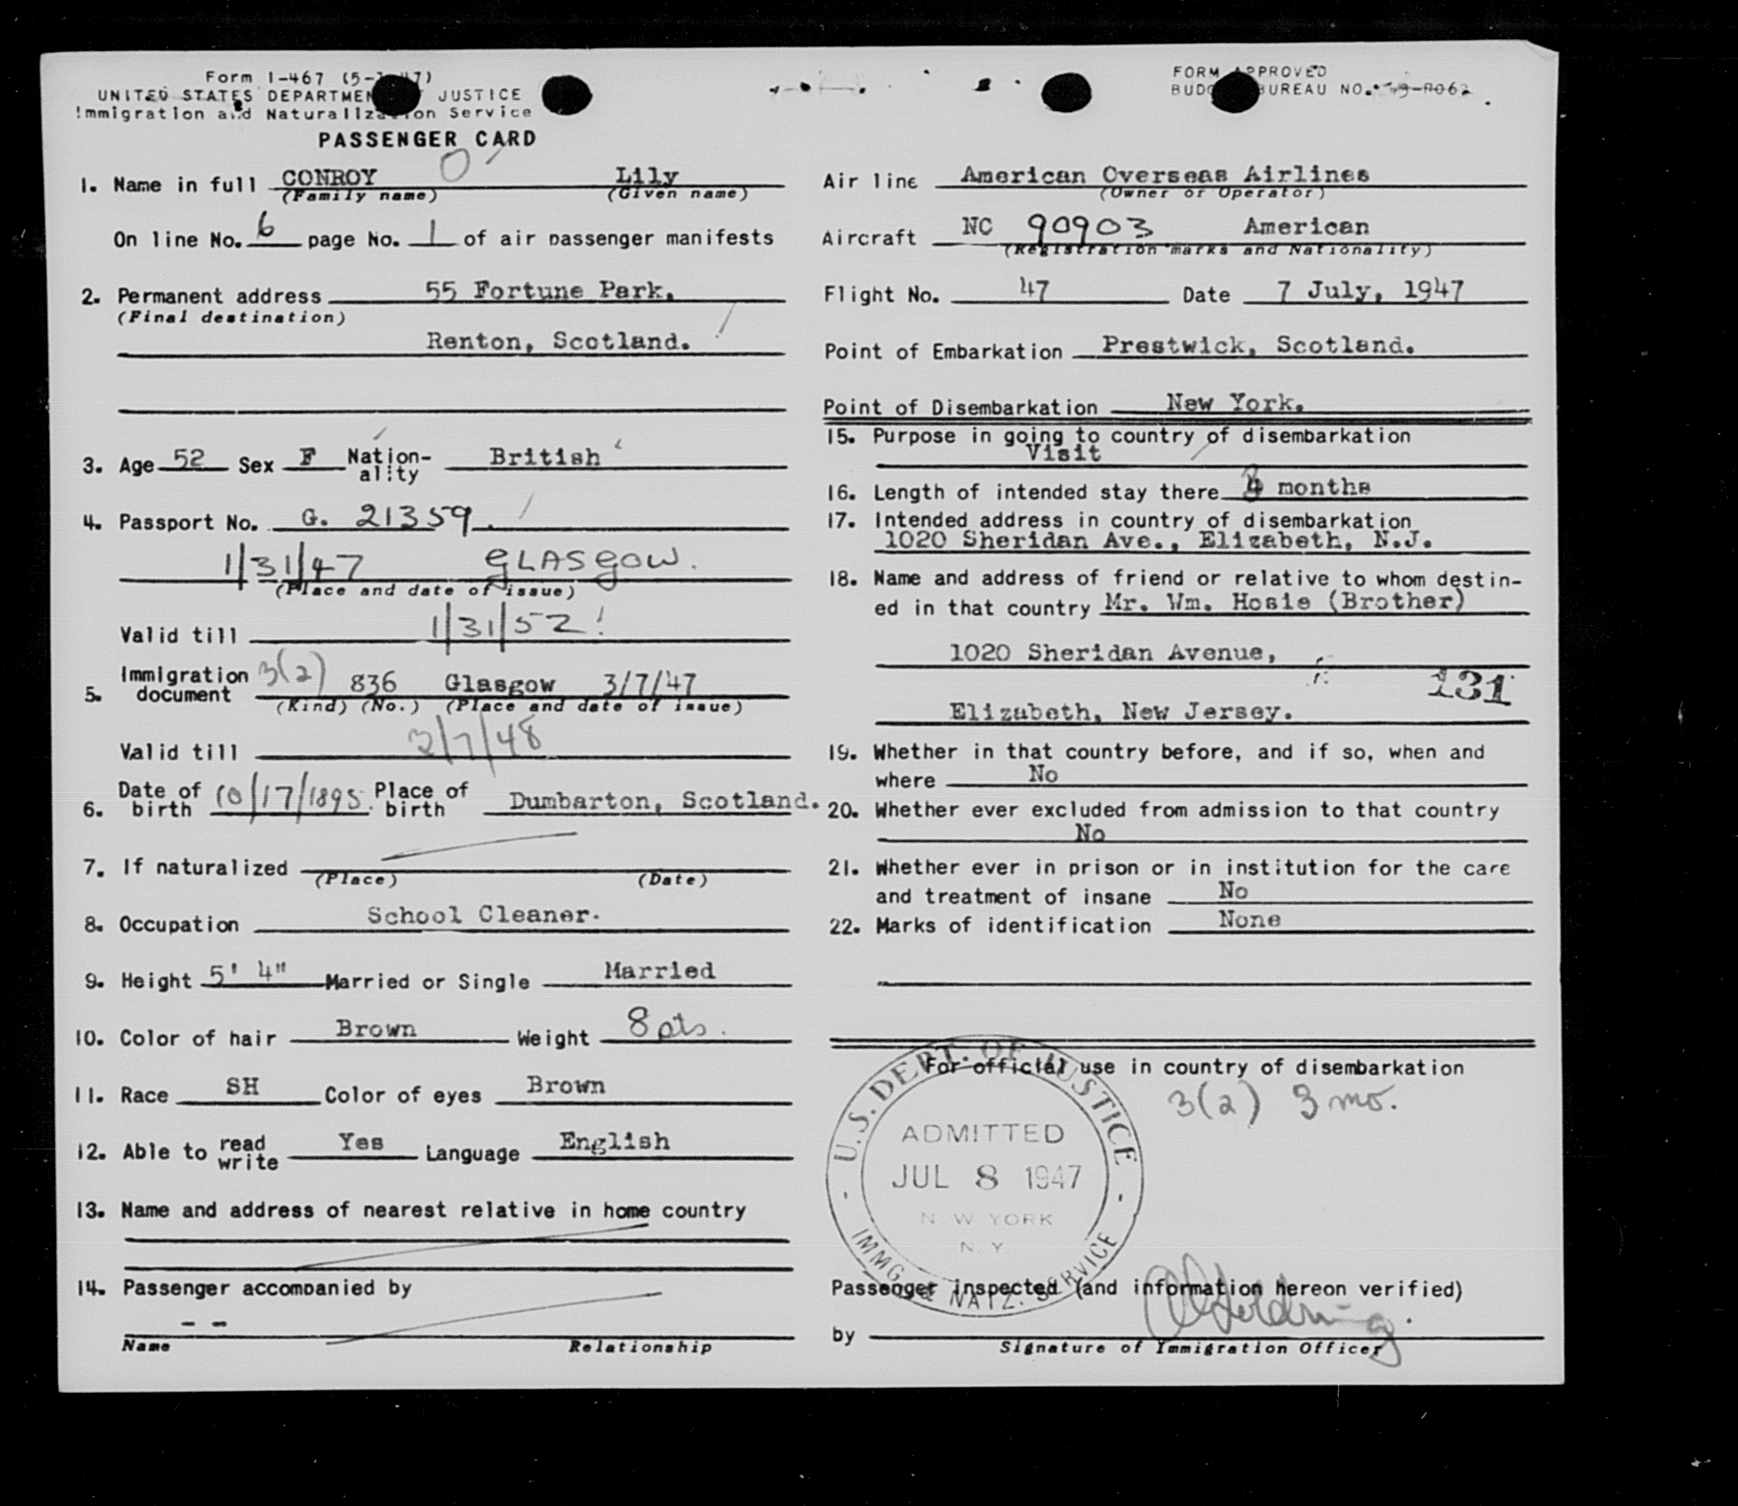 Form I-467
UNITED STATES DEPARTMENT JUSTICE
Immigration and Naturalization Service
PASSENGER CARD
1. Name in full CONROY Lily
(Family name) (Given name)
On line No. 6 page No. 1 of air passenger manifests
2. Permanent address 55 Fortune Park,
(Final destination)
Renton, Scotland.
3. Age 52 Sex F Nation-ality British
4. Passport No. G. 21359.
1/31/47 GLASGOW.
(Place and date of issue)
Valid till 1/31/52
5. Immigration document 3(2) 836 Glasgow 3/7/47
(Kind) (No.) (Place and date of issue)
Valid till 3/7/48
6. Date of birth 10/17/1895. Place of birth Dumbarton, Scotland.
7. If naturalized
(Place) (Date)
8. Occupation School Cleaner.
9. Height 5' 4" Married or Single Married
10. Color of hair Brown Weight 8
11. Race SH Color of eyes Brown
12. Able to read write Yes Language English
13. Name and address of nearest relative in home country
14. Passenger accompanied by
- -
Name Relationship
FORM APPROVED
BUDGET BUREAU NO.
Air line American Overseas Airlines
(Owner or Operator)
Aircraft NC 90903 American
(Registration marks and Nationality)
Flight No. 47 Date 7 July, 1947
Point of Embarkation Prestwick, Scotland.
Point of Disembarkation New York.
15. Purpose in going to country of disembarkation
Visit
16. Length of intended stay there months
17. Intended address in country of disembarkation
1020 Sheridan Ave., Elizabeth, N.J.
18. Name and address of friend or relative to whom destin-
ed in that country Mr. Wm. Hosie (Brother)
1020 Sheridan Avenue,
131
Elizabeth, New Jersey.
19. Whether in that country before, and if so, when and
where No
20. Whether ever excluded from admission to that country
No
21. Whether ever in prison or in institution for the care
and treatment of insane No
22. Marks of identification None
For official use in country of disembarkation
3(2) 3 mo.
U.S. DEPT. OF JUSTICE
ADMITTED
JUL 8 1947
NEW YORK
N.Y.
IMMG. & NATZ. SERVICE
Passenger inspected (and information hereon verified)
by
Signature of Immigration Officer